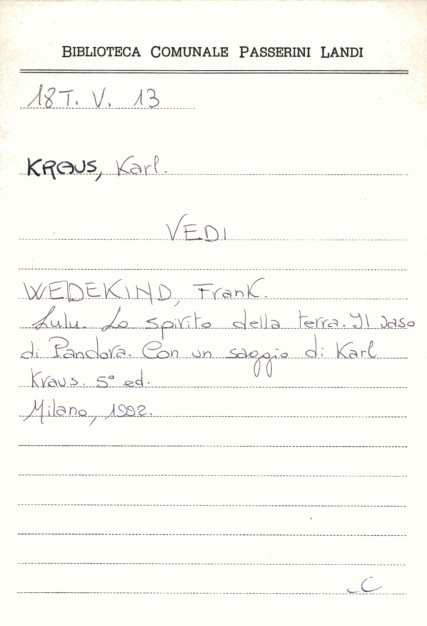 BIBLIOTECA COMUNALE PASSERINI LANDI
18T. V. 13
KRAUS, Karl.
VEDI
WEDEKIND, Frank.
Lulu. Lo spirito della terra. Il vaso
di Pandora. Con un saggio di Karl
Kraus. 5° ed.
Milano, 1992.
C